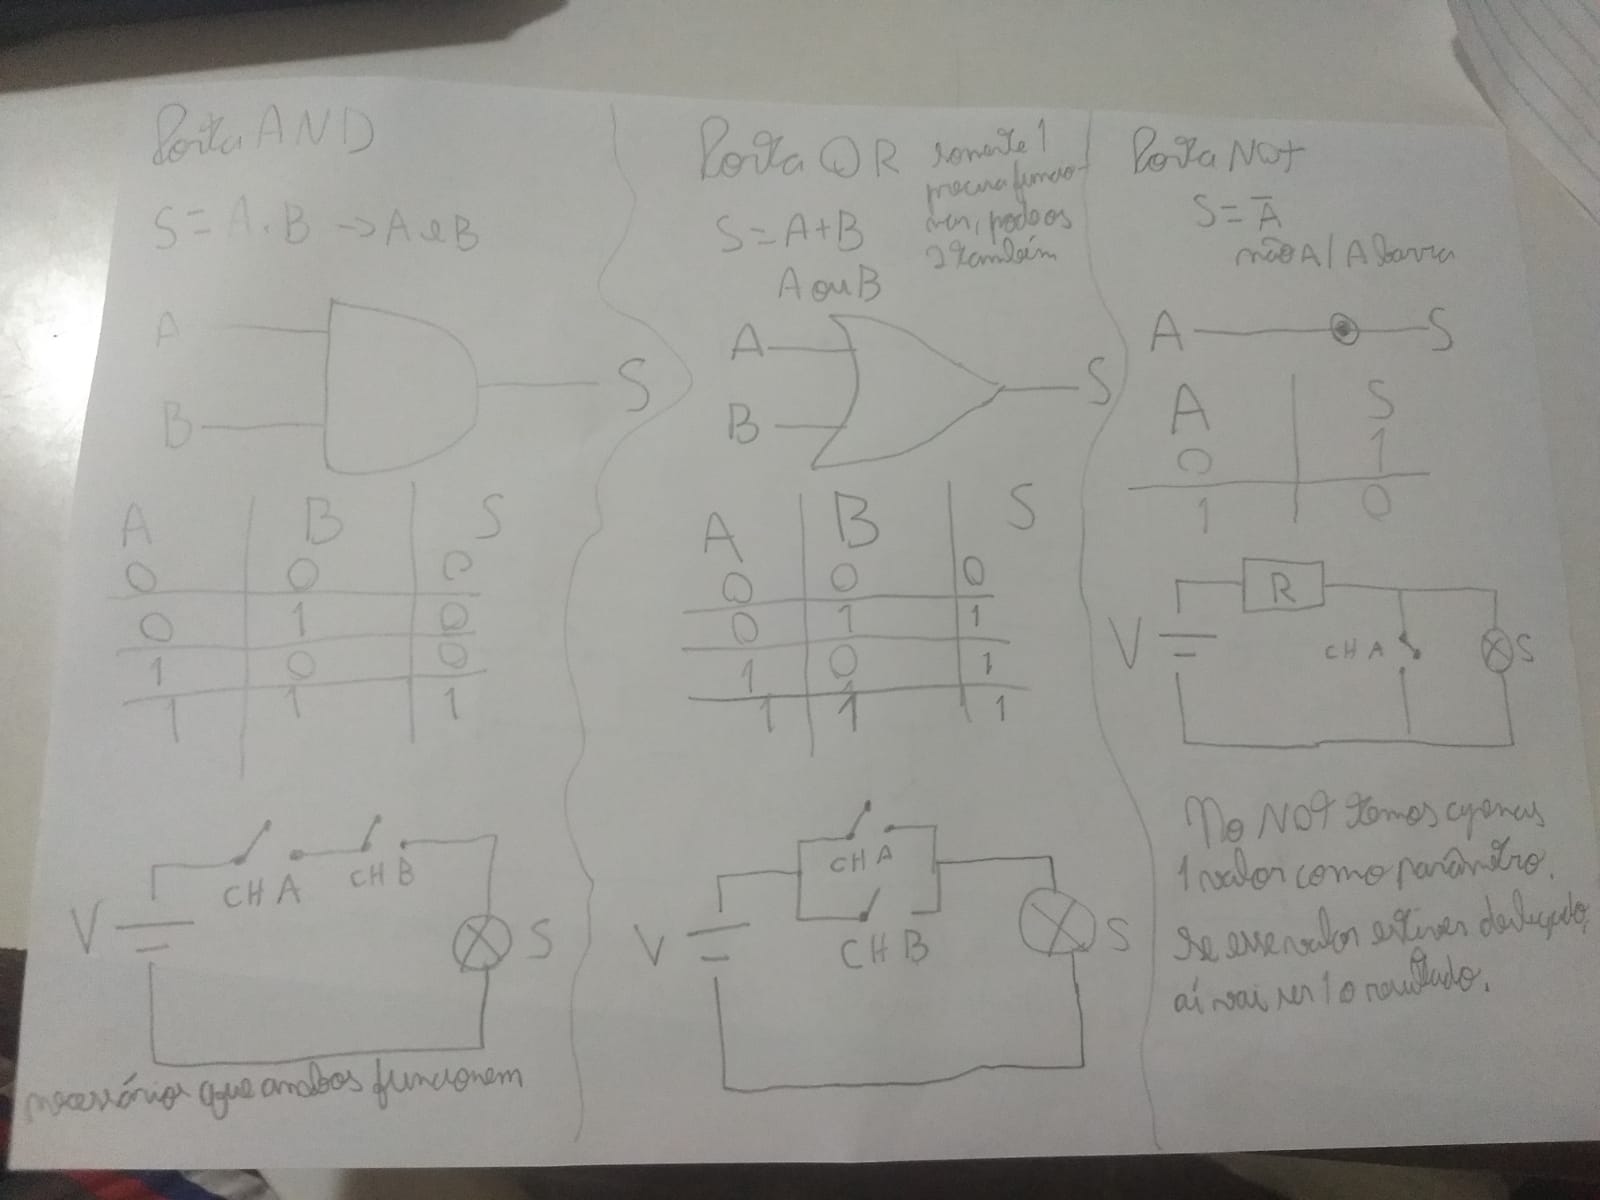 Porta AND
S = A . B -> A e B
A
B
S
A B S
0 0 0
0 1 0
1 0 0
1 1 1
CH A CH B
V
S
necessários que ambos funcionem
Porta OR
somente 1
precisa funcio-
nar, pode os
2 também
S = A+B
A ou B
A
B
S
A B S
0 0 0
0 1 1
1 0 1
1 1 1
CH A
CH B
V
S
Porta NOT
S = Ā
não A / A barra
A S
A S
0 1
1 0
R
V
CH A
S
No NOT temos apenas
1 valor como parâmetro.
Se esse valor estiver desligado,
aí vai ser 1 o resultado.